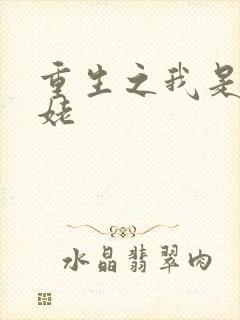 重生之我是
姥
水晶翡翠肉